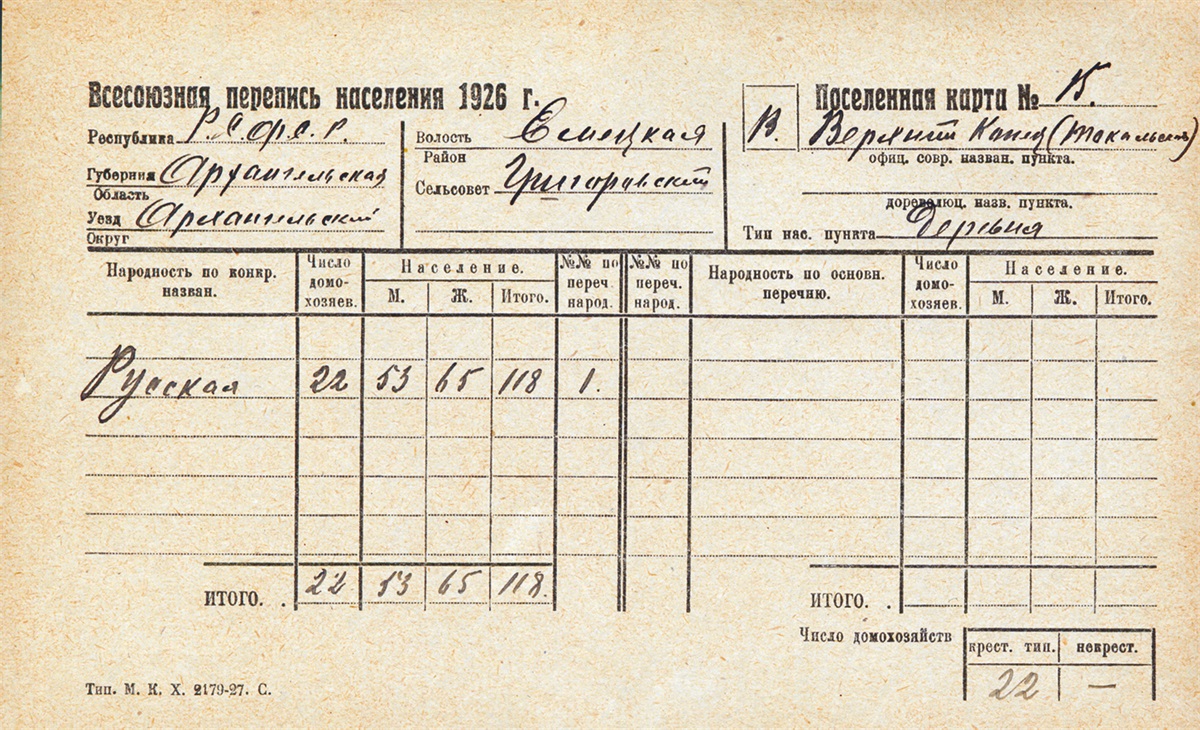 Всесоюзная перепись населения 1926 г.
В.
Поселенная карта № 15.
Республика Р.С.Ф.С.Р.
Волость Емецкая
Район
Верхний Конец
офиц. совр. назван. пункта.
Губерния Архангельская
Область
Сельсовет Григоровский
дореволюц. назв. пункта.
Уезд Архангельский
Округ
Тип нас. пункта Деревня
Народность по конкр. назван.
Число домо-хозяев.
Население.
М. Ж. Итого.
№№ по переч. народ.
№№ по переч. народ.
Народность по основн. перечню.
Число домо-хозяев.
Население.
М. Ж. Итого.
Русская 22 53 65 118 1.
ИТОГО. . 22 53 65 118.
ИТОГО. .
Число домохозяйств
крест. тип. некрест.
22 —
Тип. М. К. Х. 2179-27. С.